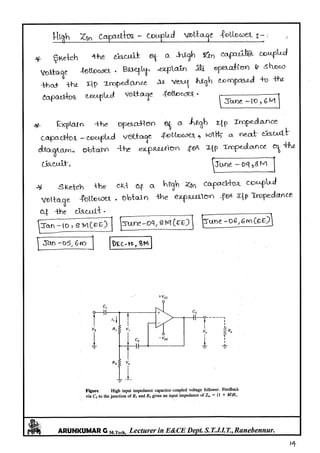 High Zin Capacitor - coupled voltage followers :-
* Sketch the circuit of a high Zin capacitor coupled
voltage follower. Briefly explain its operation & show
that the I/p Impedance is very high compared to the
capacitor coupled voltage follower.
June - 10, 6M
* Explain the operation of a high I/p Impedance
capacitor - coupled voltage follower, with a neat circuit
diagram. obtain the expression for I/p Impedance of the
circuit.
June - 09, 8M
* Sketch the ckt of a high Zin capacitor coupled
voltage follower. obtain the expression for I/p Impedance
of the circuit.
Jan - 10, 8M (EE)
June - 09, 8M (EE)
June - 06, 6m (EE)
Jan - 05, 6m
DEC - 10, 8M
+VCC
C1
C2
R1
R2
RL
-VEE
Figure High input impedance capacitor-coupled voltage follower. Feedback
via C2 to the junction of R1 and R2 gives an input impedance of Zin = (1 + M)R1.
ARUNKUMAR G M.Tech, Lecturer in E&CE Dept. S.T.J.I.T., Ranebennur.
14